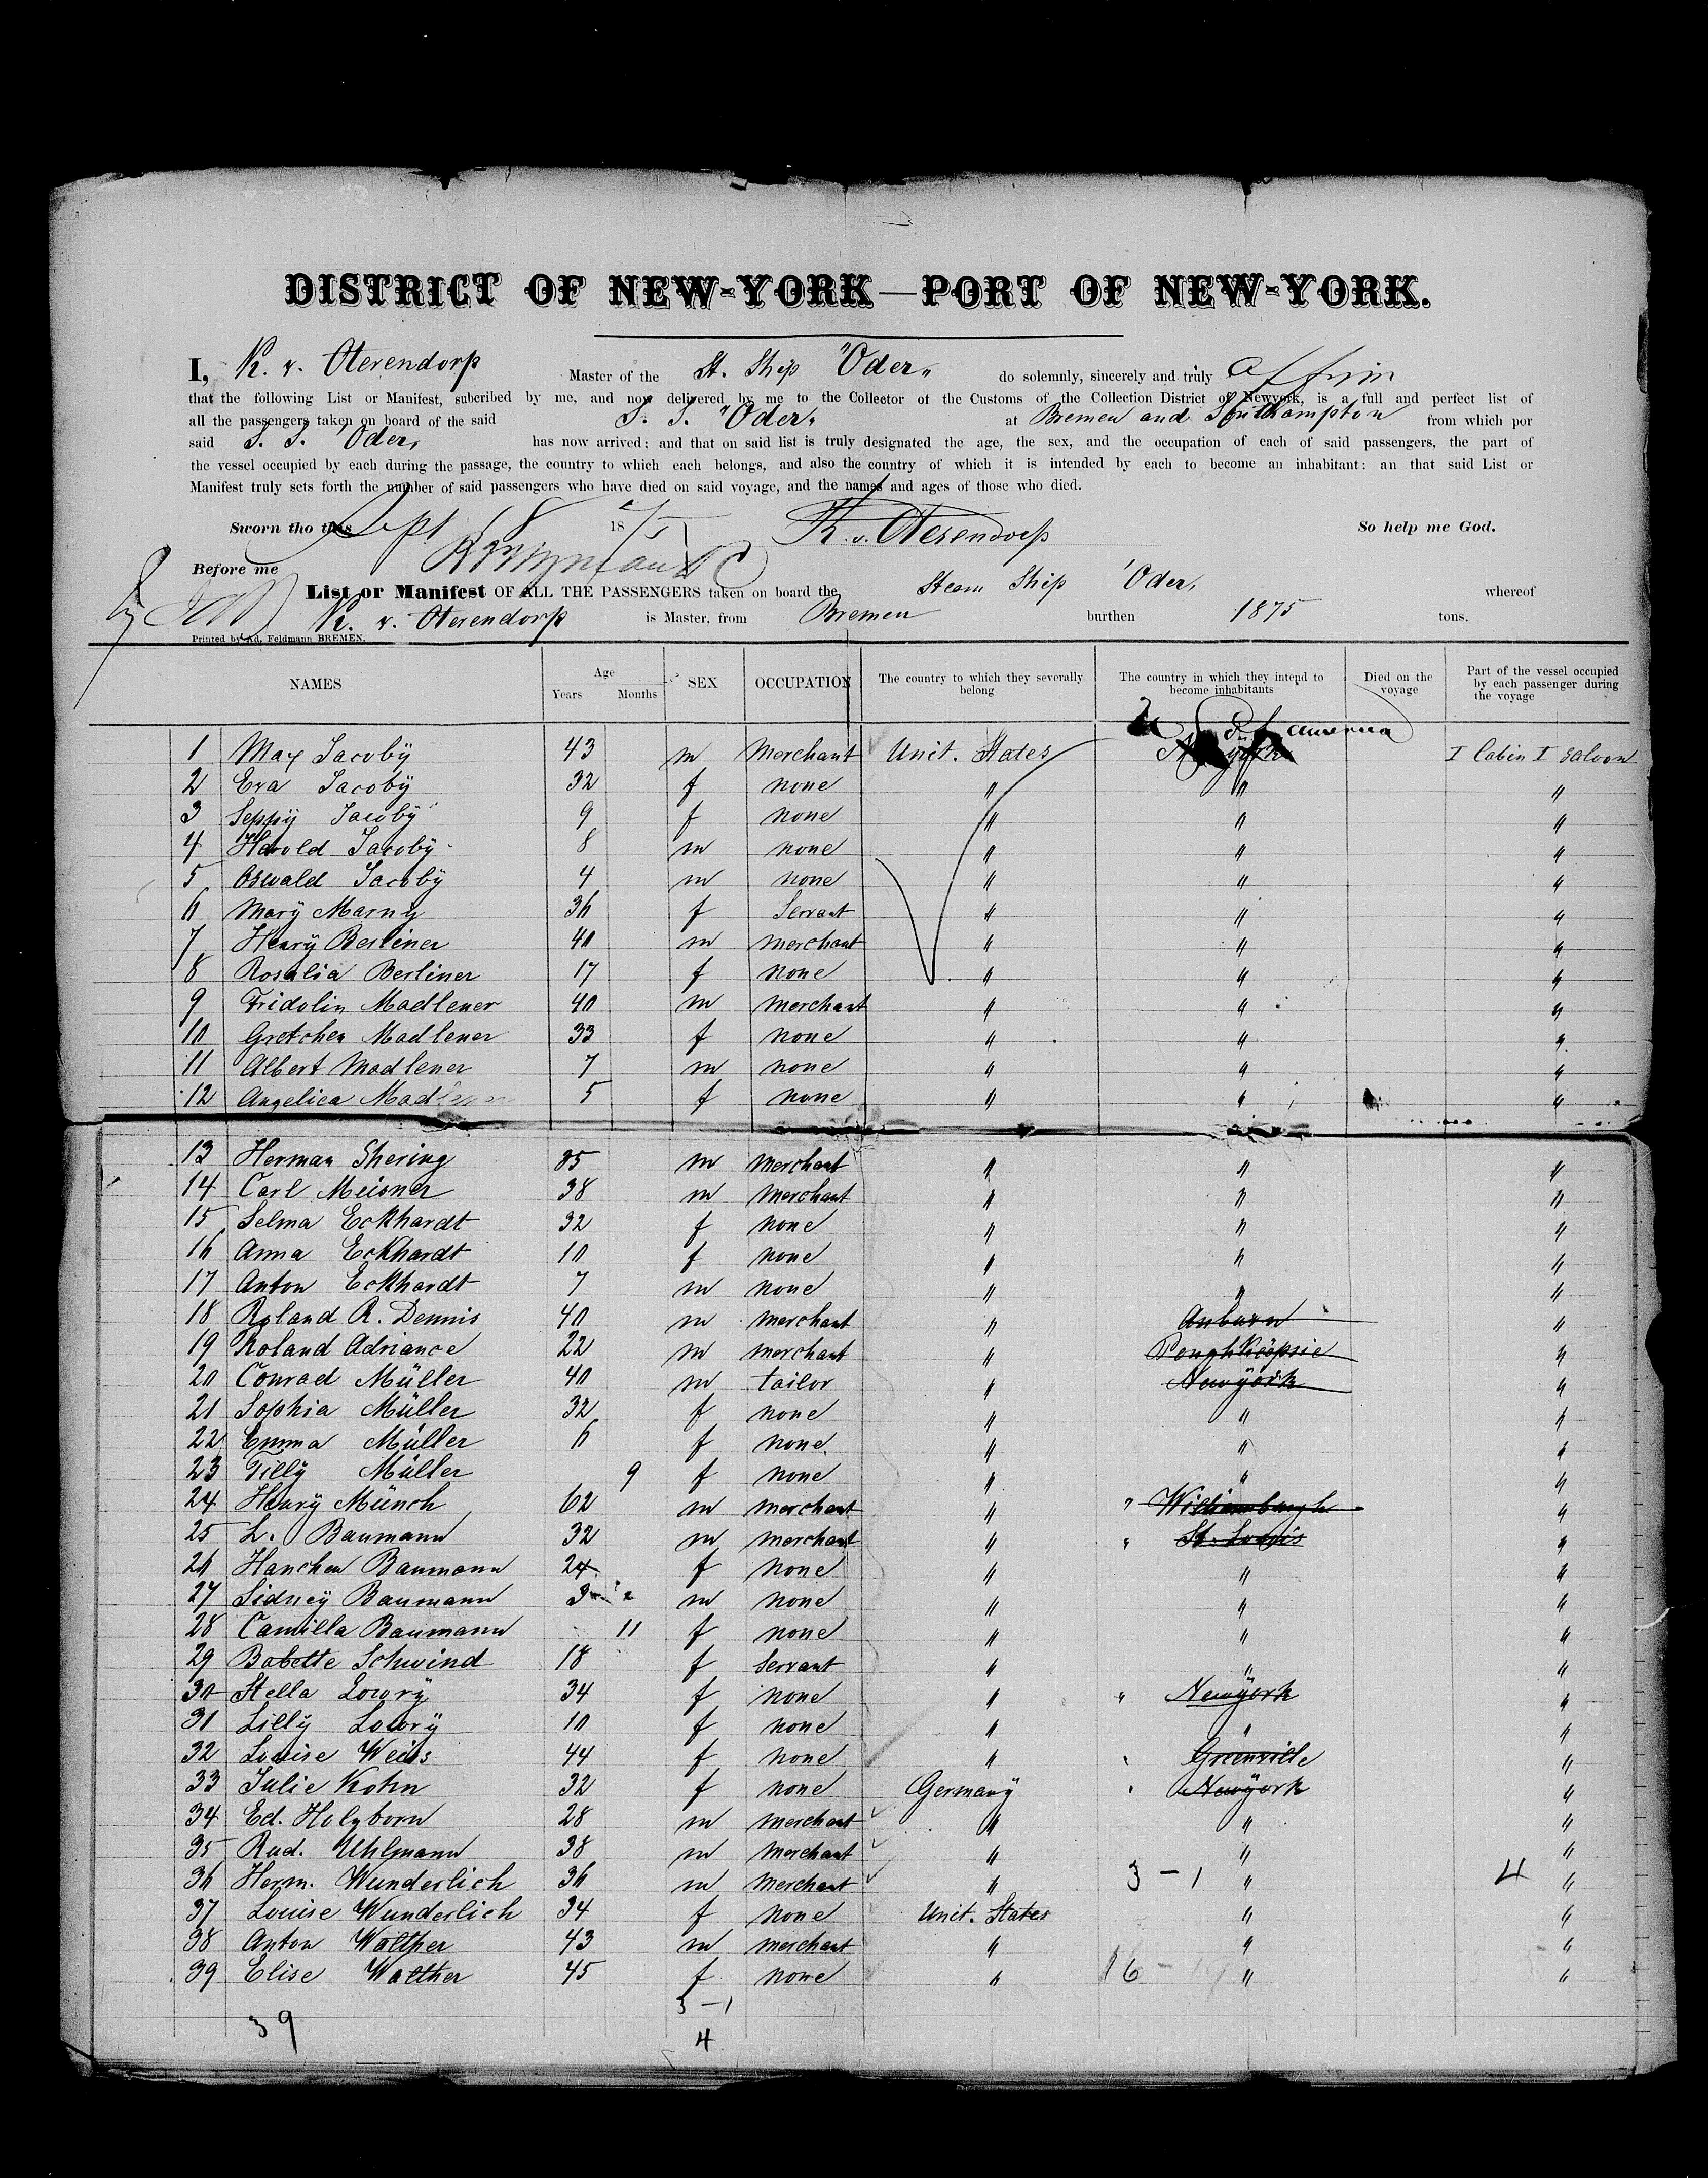 DISTRICT OF NEW-YORK—PORT OF NEW-YORK.
I, K. v. Oterendorp Master of the St. Ship "Oder" do solemnly, sincerely and truly affirm
that the following List or Manifest, subcribed by me, and now delivered by me to the Collector of the Customs of the Collection District of Newyork, is a full and perfect list of
all the passengers taken on board of the said S. S. "Oder" at Bremen and Southampton from which por
said S. S. "Oder" has now arrived; and that on said list is truly designated the age, the sex, and the occupation of each of said passengers, the part of
the vessel occupied by each during the passage, the country to which each belongs, and also the country of which it is intended by each to become an inhabitant: an that said List or
Manifest truly sets forth the number of said passengers who have died on said voyage, and the names and ages of those who died.
Sworn tho this Sept 18 1875 K. v. Oterendorp So help me God.
Before me
List or Manifest OF ALL THE PASSENGERS taken on board the Steam Ship "Oder" whereof
K. v. Oterendorp is Master, from Bremen burthen 1875 tons.
Printed by Ad. Feldmann BREMEN.
NAMES Age Years Months SEX OCCUPATION The country to which they severally belong The country in which they intend to become inhabitants Died on the voyage Part of the vessel occupied by each passenger during the voyage
U S of America
1 Max Jacoby 43 m Merchant Unit. States Newyork I Cabin I Saloon
2 Eva Jacoby 32 f none " " "
3 Seppy Jacoby 9 f none " " "
4 Harold Jacoby 8 m none " " "
5 Oswald Jacoby 4 m none " " "
6 Mary Marny 36 f Servant " " "
7 Henry Berliner 40 m merchant " " "
8 Rosalia Berliner 17 f none " " "
9 Fridolin Madlener 40 m merchant " " "
10 Gretchen Madlener 33 f none " " "
11 Albert Madlener 7 m none " " "
12 Angelica Madlener 5 f none " " "
13 Herman Shering 35 m merchant " " "
14 Carl Meisner 38 m merchant " " "
15 Selma Eckhardt 32 f none " " "
16 Anna Eckhardt 10 f none " " "
17 Anton Eckhardt 7 m none " " "
18 Roland R. Dennis 40 m merchant " Auburn "
19 Roland Adriance 22 m merchant " Poughkeepsie "
20 Conrad Müller 40 m tailor " Newyork "
21 Sophia Müller 32 f none " " "
22 Emma Müller 6 f none " " "
23 Tilly Müller 9 f none " " "
24 Henry Münch 62 m merchant " " Williamburgh "
25 L. Baumann 32 m merchant " " St. Louis "
26 Hanchen Baumann 24 f none " " "
27 Sidney Baumann 3 m none " " "
28 Camilla Baumann 11 f none " " "
29 Babette Schwind 18 f Servant " " "
30 Stella Lowry 34 f none " " Newyork "
31 Lilly Lowry 10 f none " " "
32 Louise Weiss 44 f none " " Greenville "
33 Julie Kohn 32 f none Germany " Newyork "
34 Ed. Holyborn 28 m merchant " " "
35 Rud. Uhlmann 38 m merchant " " "
36 Herm. Wunderlich 36 m merchant " 3 - 1 " 4 "
37 Louise Wunderlich 34 f none Unit. States " "
38 Anton Walther 43 m merchant " " "
39 Elise Walther 45 f none " 16 - 19 " "
3 - 1
39
4